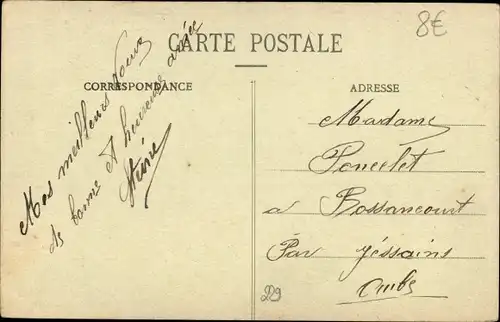 8€
CARTE POSTALE
CORRESPONDANCE
ADRESSE
Mes meilleurs voeux
de bonne et heureuse année
Madame
Poncelet
a Bossancourt
Par Jéssains
Aube
D9